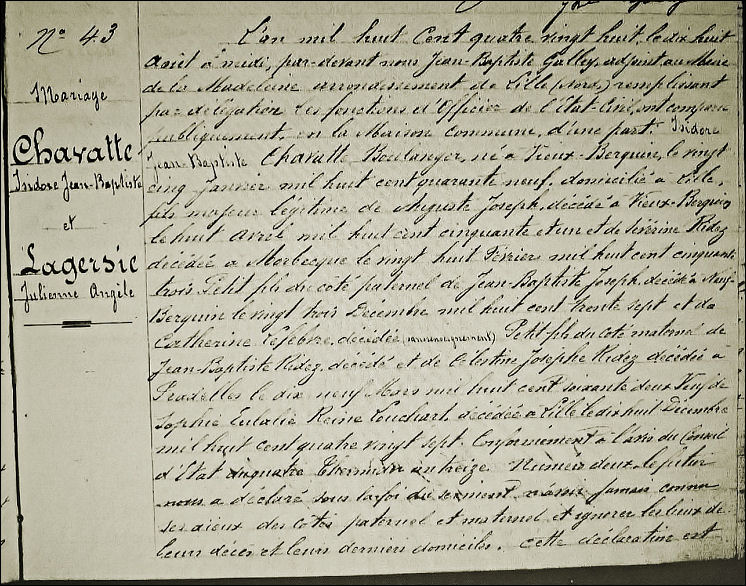 Nº 43
Mariage
Chavatte
Isidore Jean-Baptiste
et
Lagersie
Julienne Angèle
L'an mil huit cent quatre vingt huit, le dix huit
Août à midi, par-devant nous Jean-Baptiste Galley, adjoint au Maire
de la Madeleine arrondissement de Lille (Nord) remplissant
par délégation les fonctions d'Officier de l'Etat-Civil, ont comparu
publiquement en la Maison Commune, d'une part, Isidore
Jean-Baptiste Chavatte Boulanger, né à Vieux-Berquin, le vingt
cinq Janvier mil huit cent quarante neuf, domicilié à Lille,
fils majeur légitime de Auguste Joseph, décédé à Vieux-Berquin
le huit Avril mil huit cent cinquante et un et de Sévérine Ridez
décédée à Morbecque le vingt huit Février mil huit cent cinquante
trois. Petit fils du côté paternel de Jean-Baptiste Joseph, décédé à Neuf-
Berquin le vingt trois Décembre mil huit cent trente sept et de
Catherine Lefebvre, décédée (sans renseignement) Petit fils du coté maternel de
Jean-Baptiste Ridez, décédé et de Célestine Josephe Ridez décédée à
Pradelles le dix neuf Mars mil huit cent soixante deux Veuf de
Sophie Eulalie Reine Louchart décédée à Lille le dix huit Décembre
mil huit cent quatre vingt sept. Conformément à l'avis du Conseil
d'Etat du quatre Thermidor an treize. Numéro deux, le futur
nous a déclaré sous la foi du serment n'avoir jamais connu
ses aïeux des côtés paternel et maternel et ignorer les lieux de
leurs décès et leurs derniers domiciles. cette déclaration est